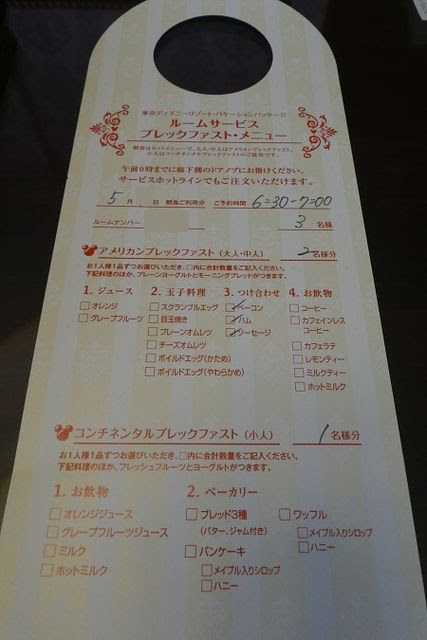 東京ディズニーリゾート・バケーションパッケージ
ルームサービス
ブレックファスト・メニュー
朝食はセットメニューで、大人・中人はアメリカンブレックファスト、
小人はコンチネンタルブレックファストのご提供です。
午前0時までに廊下側のドアノブにお掛けください。
サービスホットラインでもご注文いただけます。
5月 日 朝食ご利用分 ご予約時間 6=30-7=00
ルームナンバー 3名様
アメリカンブレックファスト（大人・中人） 2名様分
お1人様1品ずつお選びいただき、□内に合計数量をご記入ください。
下記料理のほか、プレーンヨーグルトとモーニングブレッドがつきます。
1. ジュース
□オレンジ
□グレープフルーツ
2. 玉子料理
□スクランブルエッグ
□目玉焼き
□プレーンオムレツ
□チーズオムレツ
□ボイルドエッグ（かため）
□ボイルドエッグ（やわらかめ）
3. つけ合わせ
ベーコン
ハム
ソーセージ
4. お飲物
□コーヒー
□カフェインレス
コーヒー
□カフェラテ
□レモンティー
□ミルクティー
□ホットミルク
コンチネンタルブレックファスト（小人） 1名様分
お1人様1品ずつお選びいただき、□内に合計数量をご記入ください。
下記料理のほか、フレッシュフルーツとヨーグルトがつきます。
1. お飲物
□オレンジジュース
□グレープフルーツジュース
□ミルク
□ホットミルク
2. ベーカリー
□ブレッド3種
（バター、ジャム付き）
□パンケーキ
□メイプル入りシロップ
□ハニー
□ワッフル
□メイプル入りシロップ
□ハニー